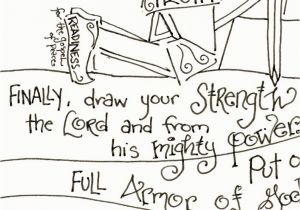 TRUTH
READINESS
for the Gospel
of peace
FINALLY, draw your Strength
the LORD and from
his mighty power
Put o
FULL Armor of God